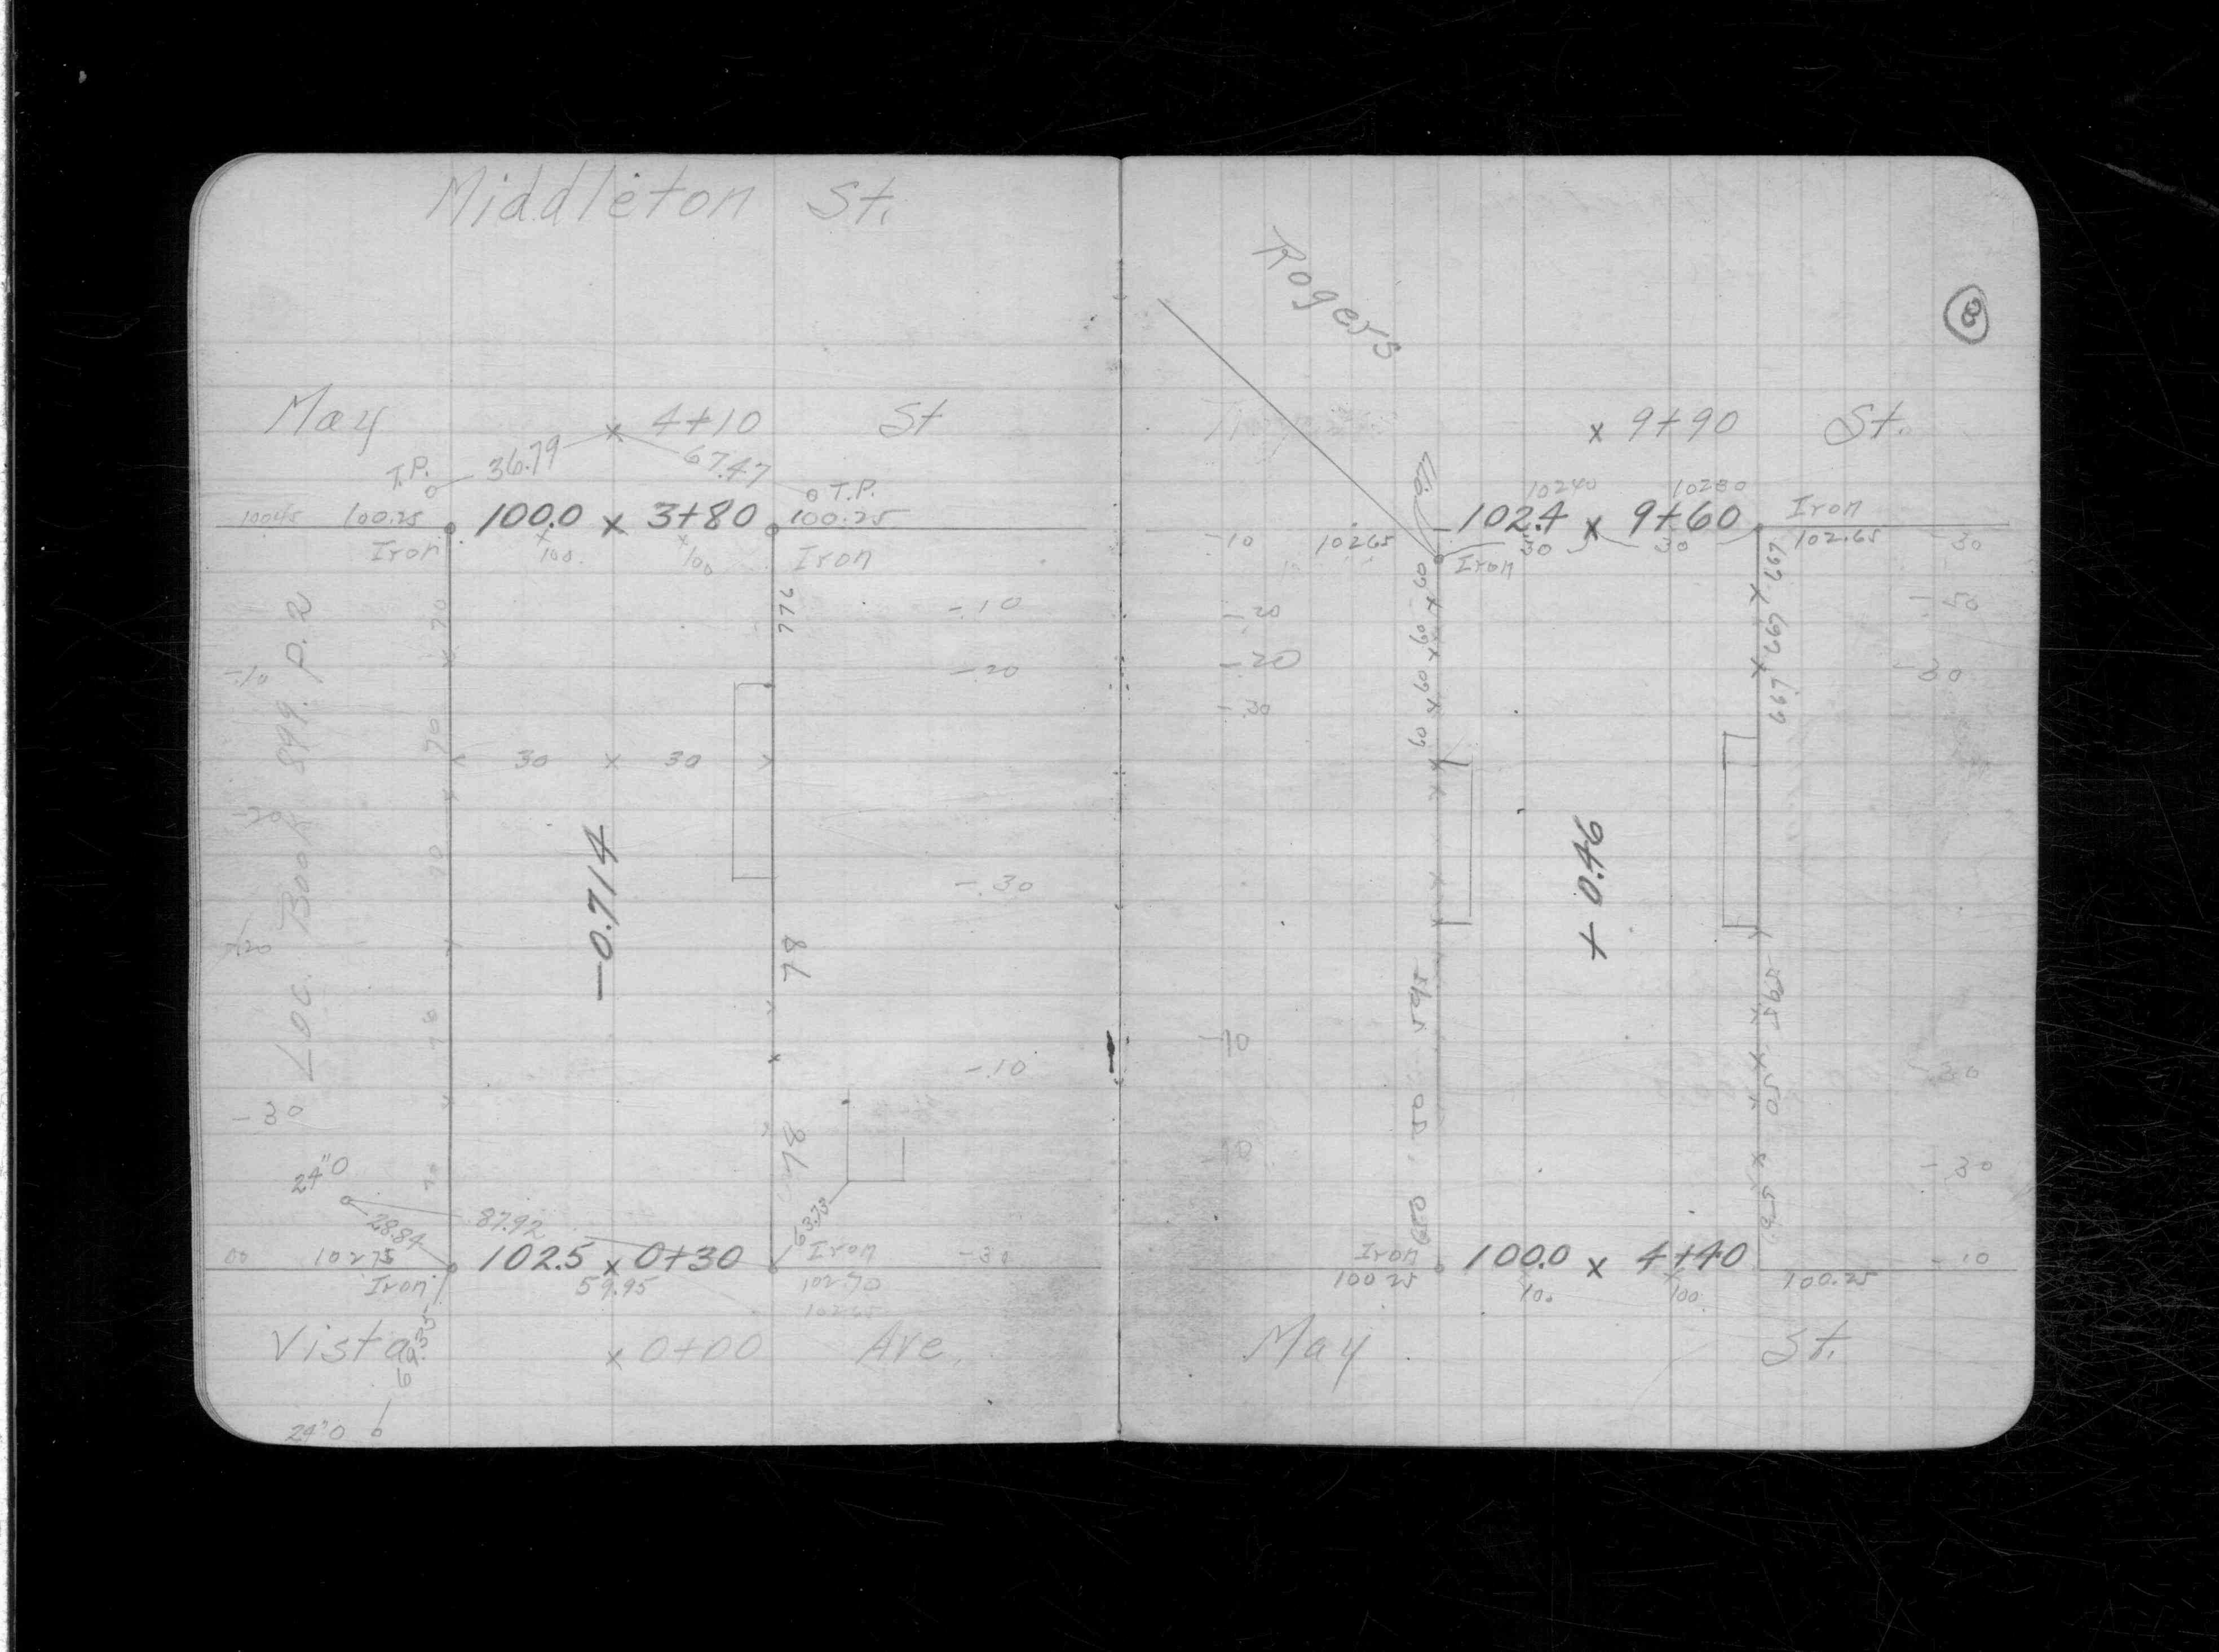 Middleton St.
May × 4+10 St
T.P. 36.79 67.47 T.P.
100.45 100.25 100.0 × 3+80 100.25
Iron 100 100 Iron
70 776 -.10
-.10 -.20
70 30 × 30
-.20
70 -.30
-0.714
-.20 78
Loc. Book 899. P. 2
78 -.10
-30
78
24"O 70
28.84 87.92 63.73
00 102.75 102.5 × 0+30 Iron -30
Iron 59.95 102.70
102.65
Vista × 0+00 Ave.
69.35
24"O
Rogers
8
× 9+90 St.
102.40 102.80
102.4 × 9+60 Iron
-10 102.65 30 30 102.65 -30
Iron
60 667
-.20 60 667 -.50
-.20 60 667 -30
-.30 60
+0.46
-10 50 -30
-30
Iron 100.0 × 4+40 -10
100.25 100 100 100.25
May St.